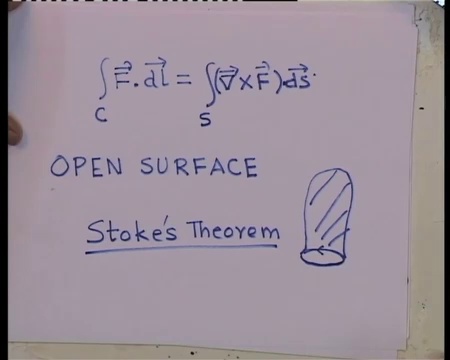 ∫_C F⃗ . d⃗l = ∫_S (∇⃗ × F⃗) d⃗s
OPEN SURFACE
Stoke's Theorem